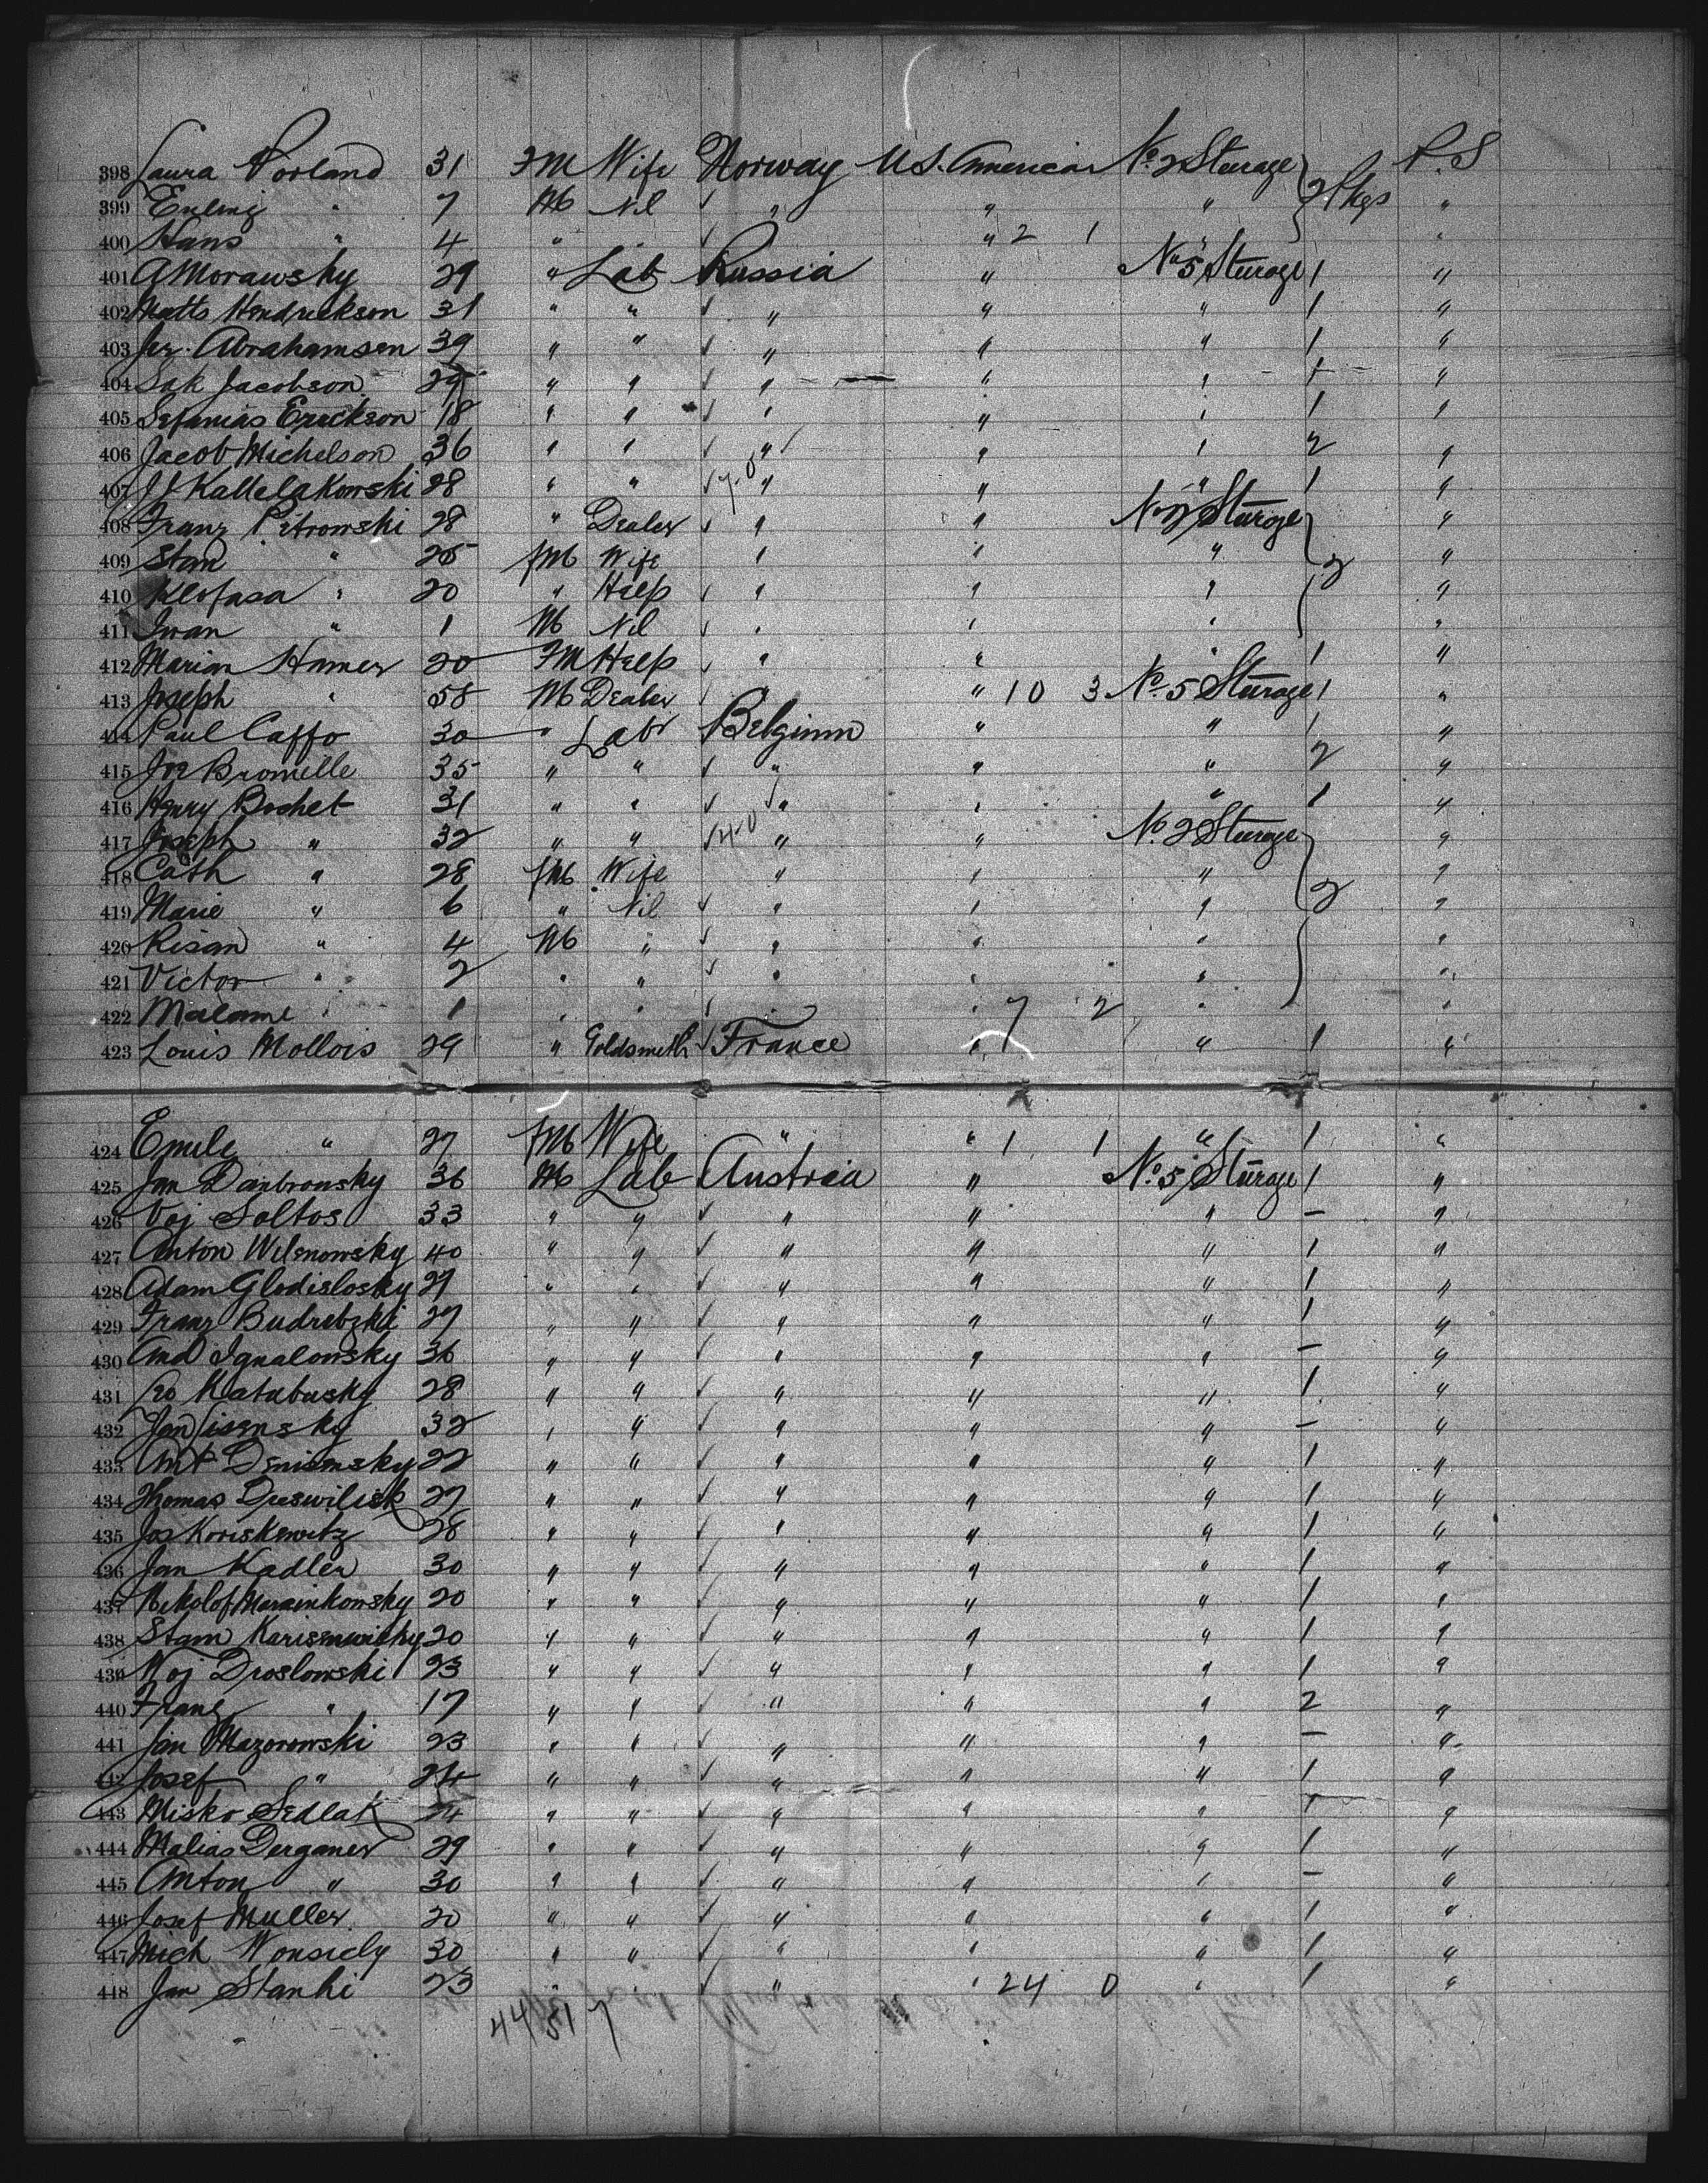 398 Laura Porland 31 FM Wife Norway U.S. America No 2 Sturage P.S
399 Erling " 7 M Nil " " " 2 Pkgs "
400 Hans " 4 " " 2 1 " "
401 A Morawsky 29 " Lab Russia " No 5 Sturage 1 "
402 Matts Hendrickson 31 " " " " " 1 "
403 Jer. Abrahamsen 39 " " " " " 1 "
404 Sak Jacobson 29 " " " " " 1 "
405 Sefanias Erickson 18 " " " " " 1 "
406 Jacob Michelson 36 " " " " " 2 "
407 Kallelakowski 28 " " " " " 1 "
408 Franz Petrowski 28 " Dealer " " No 2 Sturage "
409 Stan " 25 fM Wife " " " 2 "
410 Klofasa " 20 " Help " " " "
411 Iwan " 1 M Nil " " " "
412 Marian Hamer 20 FM Help " " " 1 "
413 Joseph " 58 M Dealer " " 10 3 No 5 Sturage 1 "
414 Paul Caffo 30 " Labr Belgium " " 1 "
415 Joe Bromille 35 " " " " " 2 "
416 Henry Boshet 31 " " " " " 1 "
417 Joseph " 32 " " " " No. 2 Sturage "
418 Cath " 28 fM Wife " " " "
419 Marie " 6 " Nil " " " 2 "
420 Risan " 4 M " " " " "
421 Victor " 2 " " " " " "
422 Malame " 1 " " " " 7 2 " "
423 Louis Mollois 29 " Goldsmith France " " 1 "
424 Emile " 27 fM Wife " " 1 1 " 1 "
425 Jan Danbronsky 36 M Lab Austria " No. 5 Sturage 1 "
426 Voj Soltos 33 " " " " " – "
427 Anton Wilsnowsky 40 " " " " " 1 "
428 Adam Glodislosky 27 " " " " " 1 "
429 Franz Budretzki 27 " " " " " 1 "
430 And Ignalowsky 36 " " " " " – "
431 Leo Katabusky 28 " " " " " 1 "
432 Jan Lisensky 32 " " " " " – "
433 Ant Denismsky 22 " " " " " 1 "
434 Thomas Dreswilisk 27 " " " " " 1 "
435 Jos Koriskewitz 28 " " " " " 1 "
436 Jan Kadler 30 " " " " " 1 "
437 Nekolof Marcinkowsky 20 " " " " " 1 "
438 Stam Karisenwisky 20 " " " " " 1 "
439 Woj Droslowski 23 " " " " " 1 "
440 Franz " 17 " " " " " 2 "
441 Jan Mazorowski 23 " " " " " – "
442 Josef " 24 " " " " " 1 "
443 Misko Sedlak 24 " " " " " 1 "
444 Malias Derganer 29 " " " " " 1 "
445 Anton " 30 " " " " " – "
446 Josef Muller 20 " " " " " 1 "
447 Mich Wonsidy 30 " " " " " 1 "
448 Jan Stanhi 23 " " " " 24 0 " 1 "
44 51 7